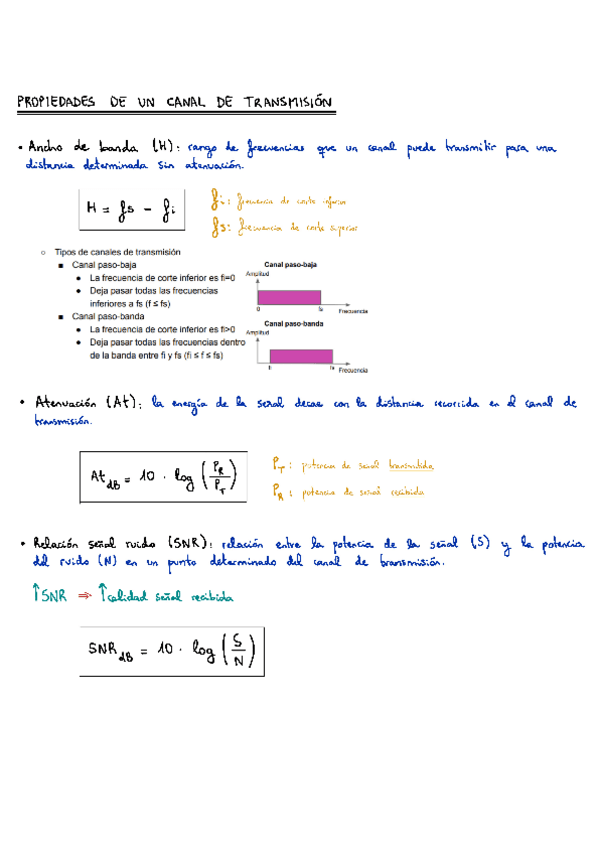 PROPIEDADES DE UN CANAL DE TRANSMISIÓN
• Ancho de banda (H): rango de frecuencias que un canal puede transmitir para una
distancia determinada sin atenuación.
H = fs - fi
fi: frecuencia de corte inferior
fs: frecuencia de corte superior
○ Tipos de canales de transmisión
■ Canal paso-baja
● La frecuencia de corte inferior es fi=0
● Deja pasar todas las frecuencias
inferiores a fs (f ≤ fs)
■ Canal paso-banda
● La frecuencia de corte inferior es fi>0
● Deja pasar todas las frecuencias dentro
de la banda entre fi y fs (fi ≤ f ≤ fs)
Canal paso-baja
Amplitud
0 fs
Frecuencia
Canal paso-banda
Amplitud
fi fs
Frecuencia
• Atenuación (At): la energía de la señal decae con la distancia recorrida en el canal de
transmisión.
At dB = 10 · log (PR/PT)
PT: potencia de señal transmitida
PR: potencia de señal recibida
• Relación señal ruido (SNR): relación entre la potencia de la señal (S) y la potencia
del ruido (N) en un punto determinado del canal de transmisión.
↑SNR ⇒ ↑calidad señal recibida
SNR dB = 10 · log (S/N)